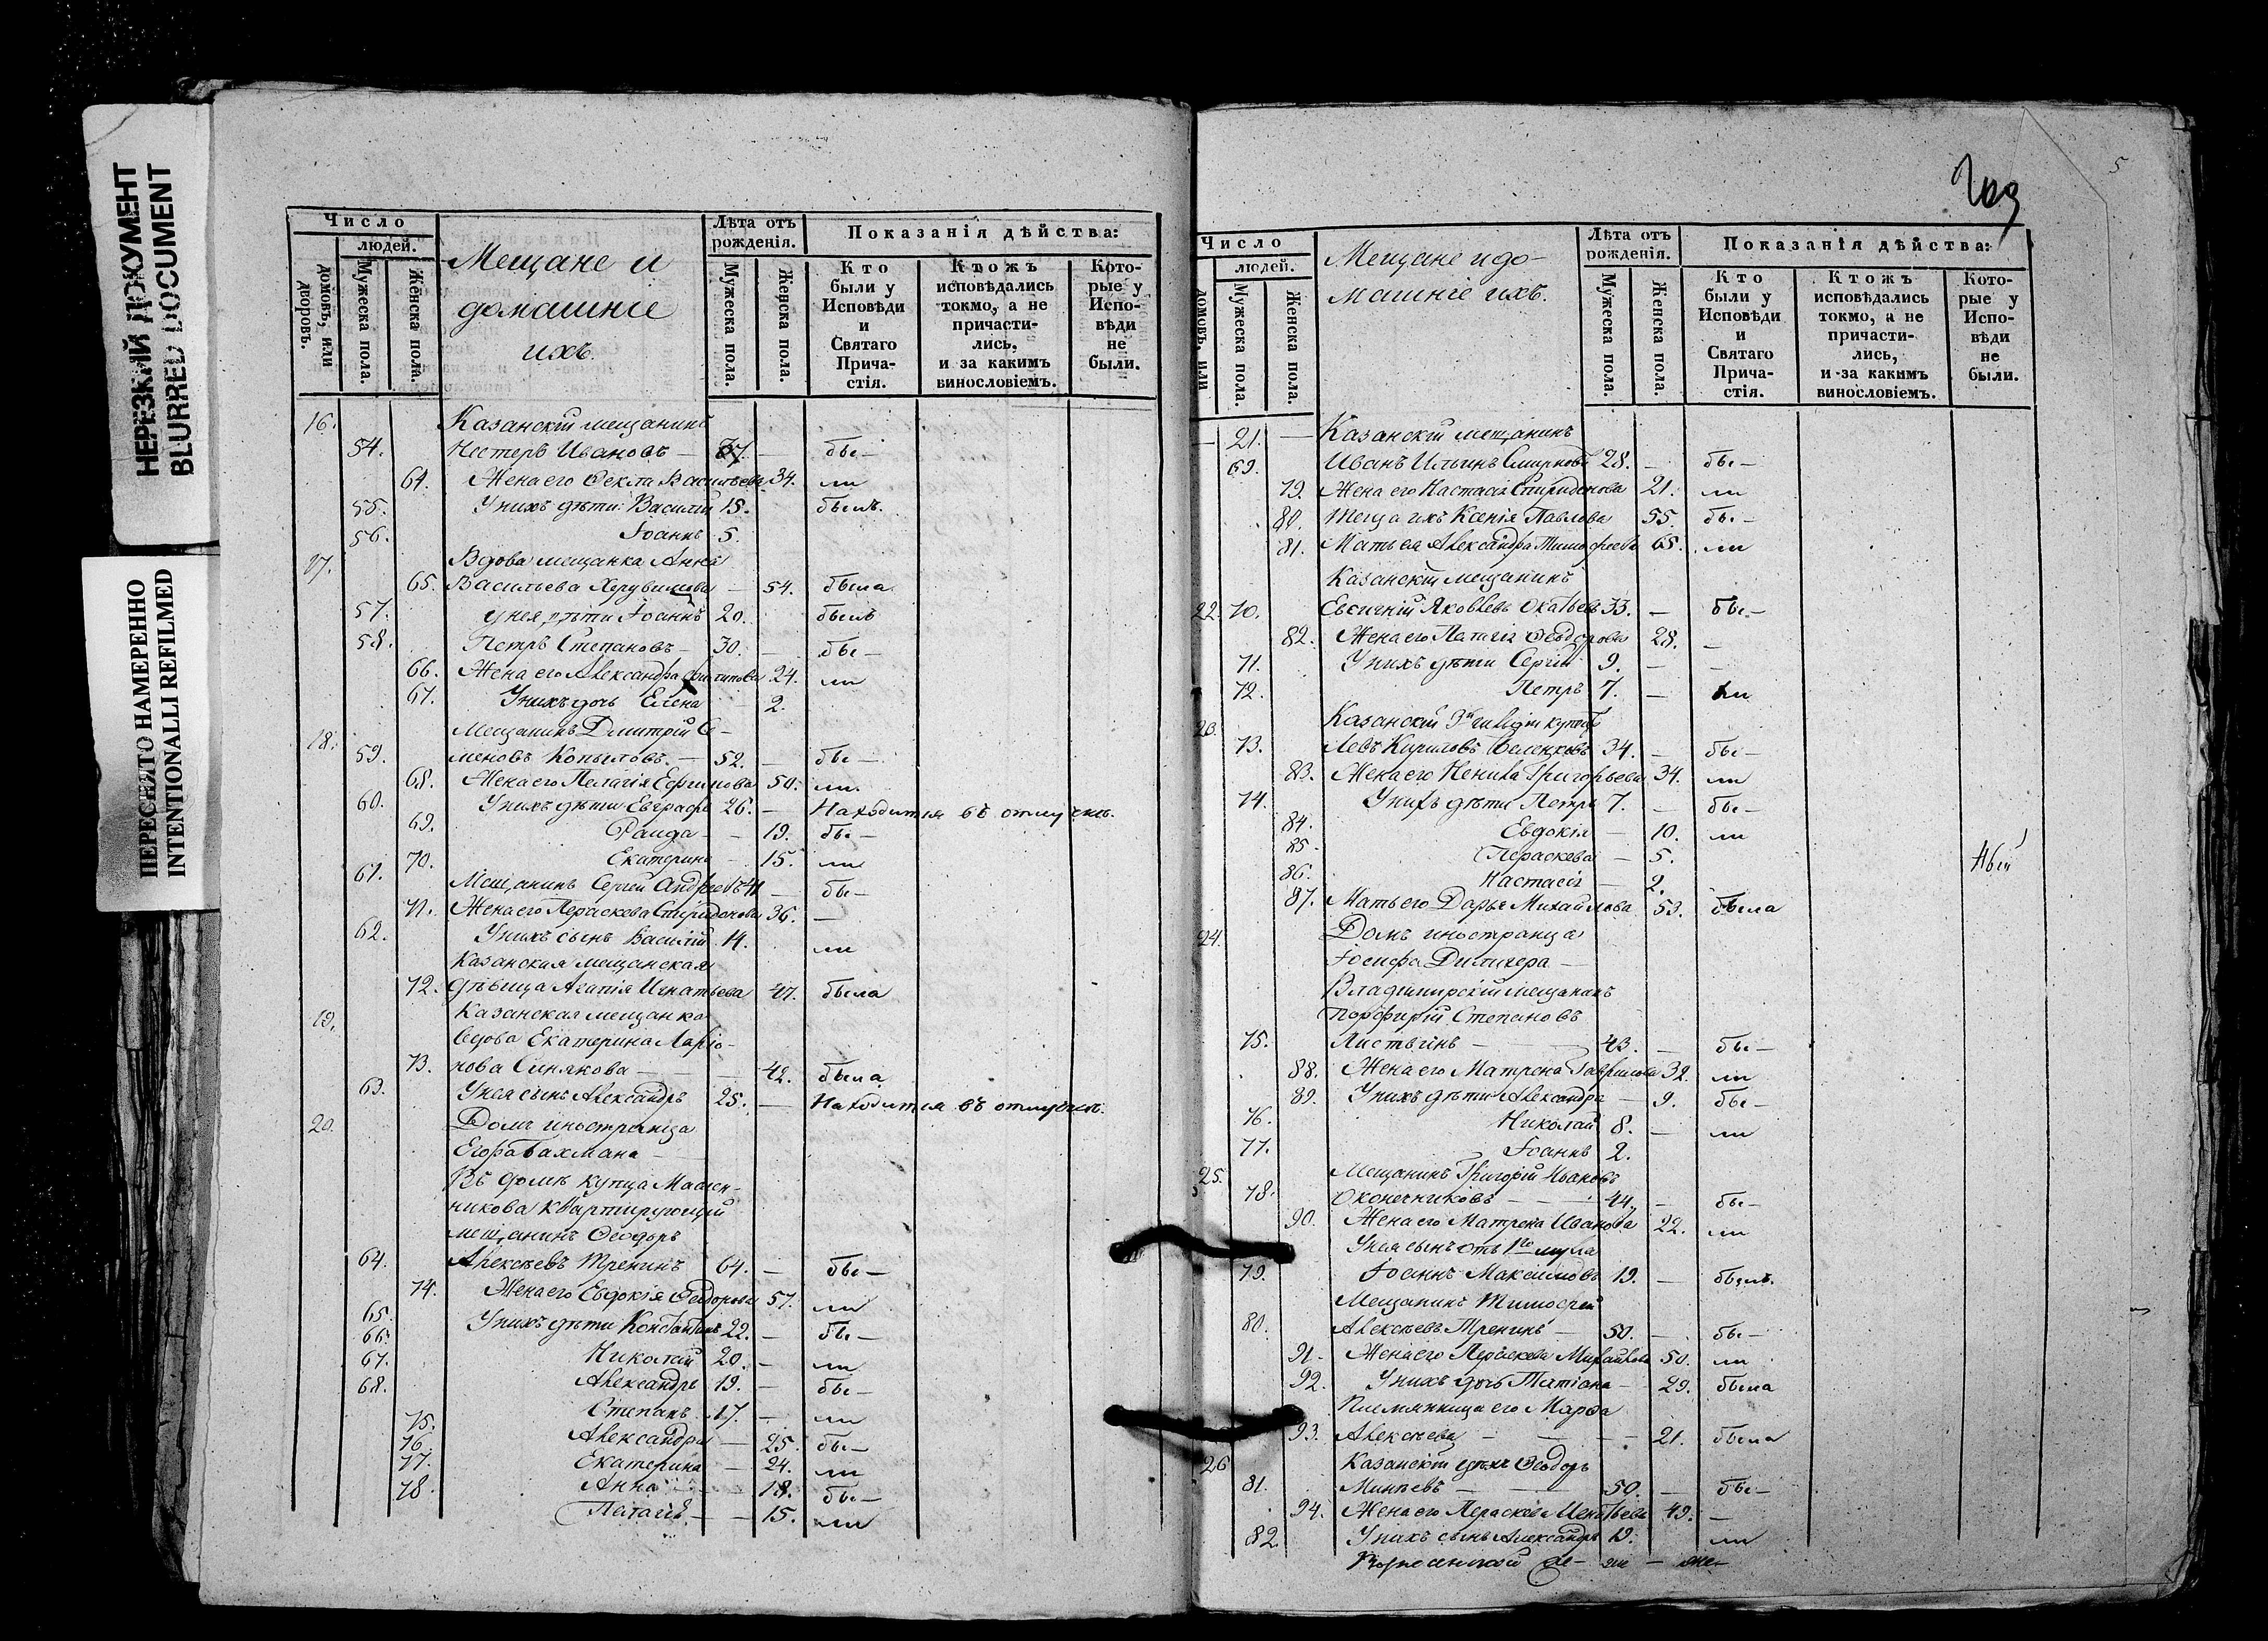 НЕРЕЗКИЙ ДОКУМЕНТ
BLURRED DOCUMENT
ПЕРЕСНЯТО НАМЕРЕННО
INTENTIONALLI REFILMED
Число
людей.
домовъ, или дворовъ.
Мужеска пола.
Женска пола.
Мещане и
домашніе
ихъ
Лѣта отъ рожденія.
Мужеска пола.
Женска пола.
Показанія дѣйства:
Кто были у Исповѣди и Святаго Прича-стія.
Ктожъ исповѣдались токмо, а не причасти-лись, и за какимъ винословіемъ.
Кото-рые у Испо-вѣди не были.
16. Казанскій мещанинъ
54. Нестеръ Ивановъ — 37. — бы —
64. Жена его Ѳекла Васильева 34. ли
55. У нихъ дѣти: Василій 15. былъ.
56. Іоаннъ 5.
17. Вдова мещанка Анна
65. Васильева Херувимова — 54. была
57. у нея дѣти Іоаннъ 20. былъ
58. Петръ Степановъ — 30. — бы —
66. Жена его Александра Филипова 24. ли
67. У нихъ дочь Елена 2.
18. Мещанинъ Дмитрій Се-
59. меновъ Копыловъ. — 52. — бы —
68. Жена его Пелагія Ефимова 50. ли.
60. У нихъ дѣти Евграфъ 26. — Находится въ отлучкѣ.
69. Раида — — 19. бы —
70. Екатерина — 15. ли
61. Мещанинъ Сергей Андреевъ 41 — бы —
71. Жена его Пераскева Спиридонова 36. —
62. У нихъ сынъ Василій 14. ли
Казанская мещанская
72. дѣвица Агапія Игнатьева 47. была
19. Казанская мещанка
вдова Екатерина Ларіо-
73. нова Синякова — — — 42. была
63. У нея сынъ Александръ 25. — Находится въ отлучкѣ.
20. Домъ иностранца
Егора Бахмана —
Въ домѣ купца Маслен-
никова квартирующій
мещанинъ Ѳеодоръ
64. Алексѣевъ Тренинъ 64. — бы —
74. Жена его Евдокія Ѳеодорова 57. ли
65. У нихъ дѣти Константинъ 22. — бы —
66. Николай 20. — ли
67. Александръ 19. — бы —
68. Степанъ 17. — ли
75. Александра — 25. бы —
76. Екатерина — 24. ли
77. Анна 18. бы —
78. Пелагія — — 15. ли
5
Число
людей.
домовъ, или
Мужеска пола.
Женска пола.
Мещане и до-
машніе ихъ.
Лѣта отъ рожденія.
Мужеска пола.
Женска пола.
Показанія дѣйства:
Кто были у Исповѣди и Святаго Прича-стія.
Ктожъ исповѣдались токмо, а не причасти-лись, и за какимъ винословіемъ.
Кото-рые у Испо-вѣди не были.
— 21. — Казанскій мещанинъ
69. Иванъ Ильинъ Смирновъ 28. — бы —
79. Жена его Настасія Спиридонова 21. ли
80. Теща ихъ Ксенія Павлова 55. бы —
81. Мать ея Александра Тимофеева 65. ли
Казанскій мещанинъ
22. 70. Евсигній Яковлевъ 33. — бы —
82. Жена его Пелагія Ѳеодорова 28. —
71. У нихъ дѣти Сергій 9. — —
72. Петръ 7. — ли
23. Казанскій 3й гильдіи купецъ
73. Левъ Кириловъ 34. — бы —
83. Жена его Ненила Григорьева 34. ли
74. У нихъ дѣти Петръ 7. — бы —
84. Евдокія — 10. ли
85. Пераскева — 5.
86. Настасія — 2.
87. Мать его Дарья Михайлова 53. была
24. Домъ иностранца
Іосифа —
Владимирскій мещанинъ
Порфирій Степановъ
75. Листвинъ — — 43. — бы —
88. Жена его Матрена Гаврилова 32. ли
89. У нихъ дѣти Александра — 9. бы —
76. Николай 8. — ли
77. Іоаннъ 2.
25. Мещанинъ Григорій Ивановъ
78. Оконечниковъ — — 44. — бы —
90. Жена его Матрена Иванова 22. ли
У нея сынъ отъ 1го мужа
79. Іоаннъ Максимовъ 19. — былъ.
Мещанинъ Тимофей
80. Алексѣевъ Тренинъ — 50. — бы —
91. Жена его Пераскева Михайлова 50. ли
92. У нихъ дочь Татіана — 29. была
Племянница его Марѳа
93. Алексѣева — — — 21. была
26 Казанскій цехъ Ѳеодоръ
81. Минѣевъ — — 50. — бы —
94. Жена его Пераскева Игнатьева 49. —
82. У нихъ сынъ Александръ 19. ли